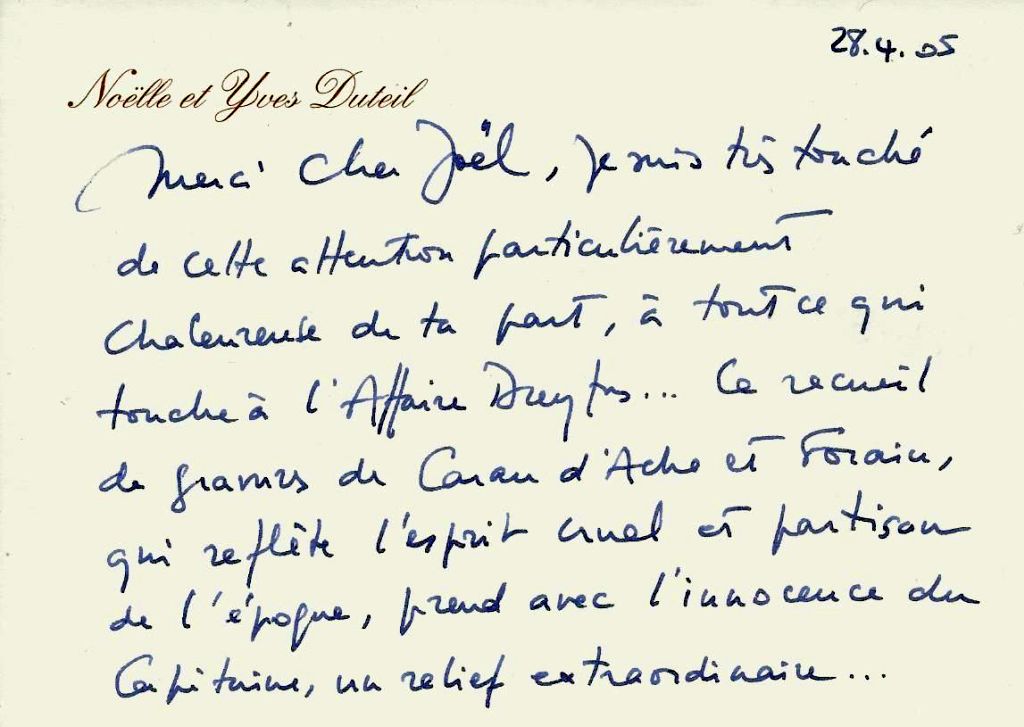 28.4.05
Noëlle et Yves Duteil
Merci cher Joël, je suis très touché
de cette attention particulièrement
chaleureuse de ta part, à tout ce qui
touche à l'Affaire Dreyfus... Ce recueil
de gravures de Caran d'Ache et Forain,
qui reflète l'esprit cruel et partisan
de l'époque, prend avec l'innocence du
Capitaine, un relief extraordinaire...